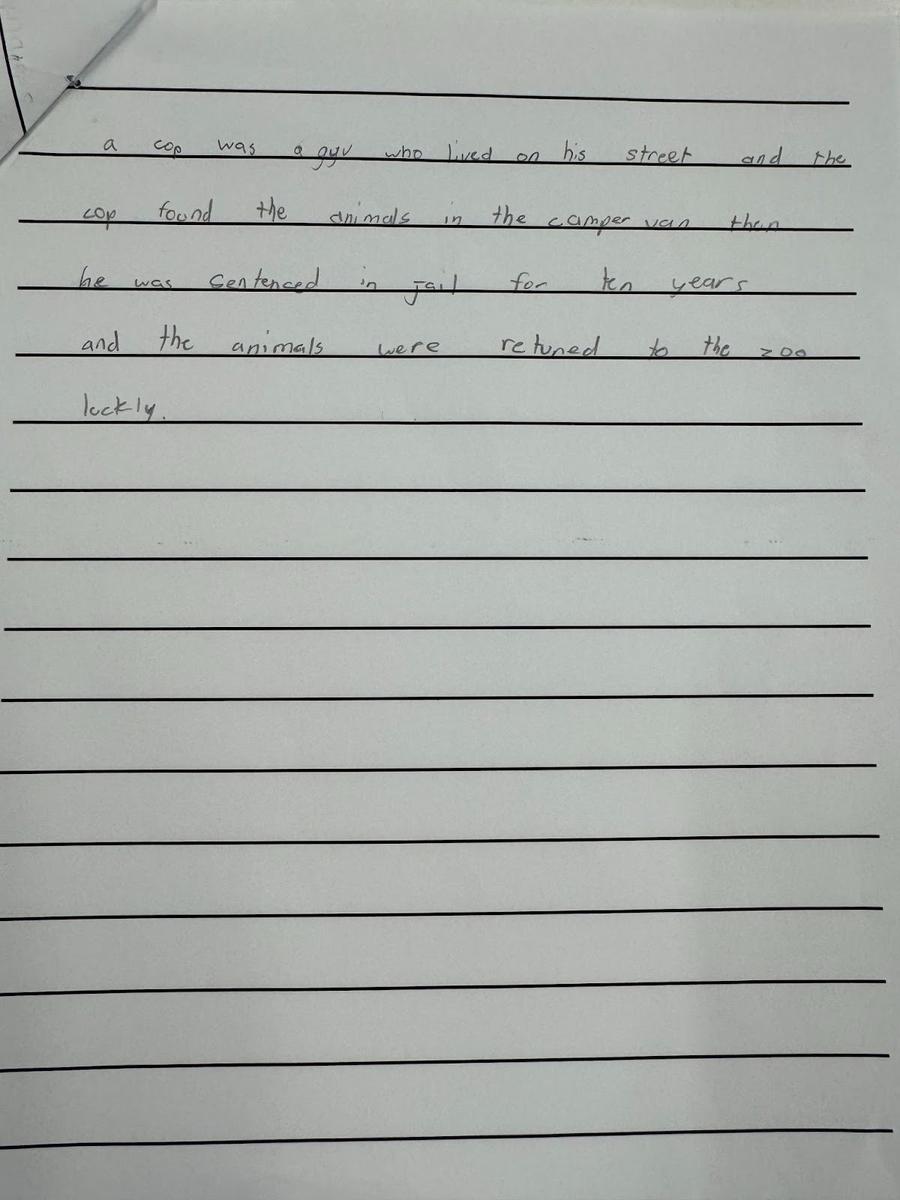 a cop was a guy who lived on his street and the
cop found the animals in the camper van then
he was sentenced in jail for ten years
and the animals were retuned to the zoo
luckly.